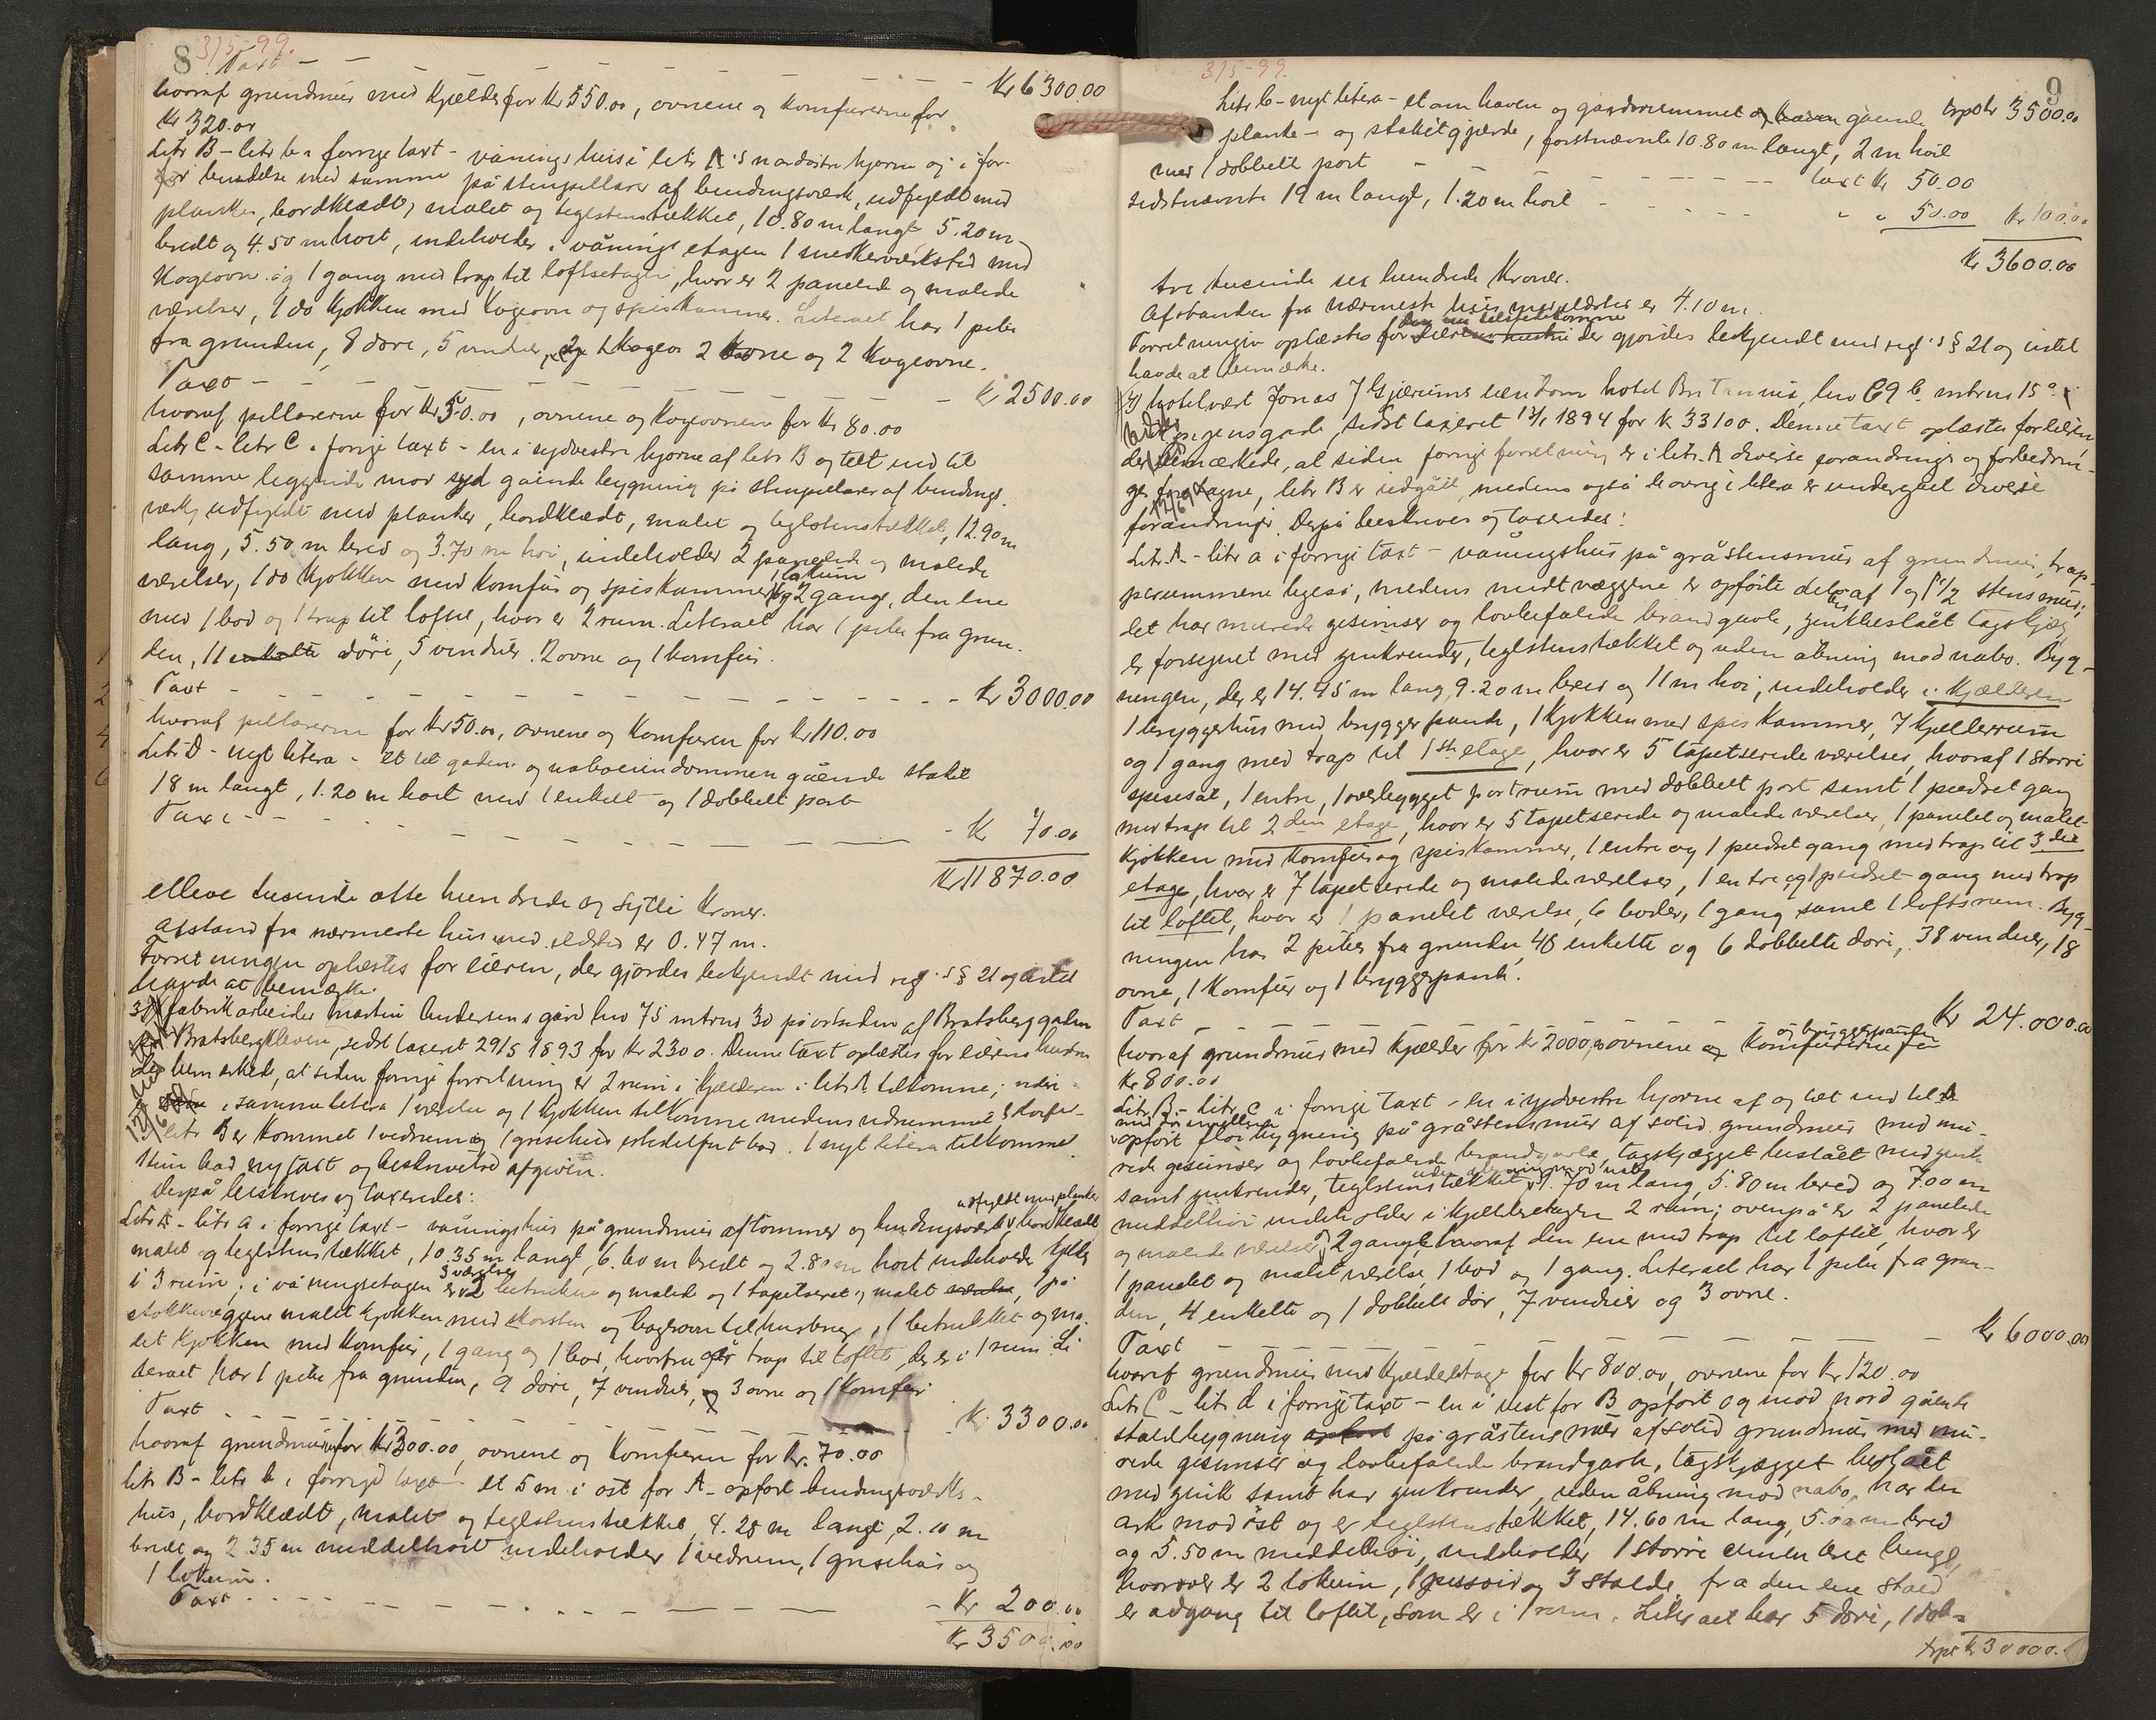 8
3/5-99.
Taxt - - - - - - - - Kr 6300.00
hvoraf grundmur med kjælder for Kr 550.00, ovnene og komfurerne for
Kr 320.00
Litr B - litr b i forrige taxt - våningshus i litr A's nordöstre hjørne og i for-
bindelse med samme på stenpillarer af bindingsværk, udfyldt med
planker, bordklædt, malet og teglstenstækket, 10.80 m langt 5.20 m
bredt og 4.50 m høit, indeholder i våningsetagen 1 snedkerværksted med
kogeovn og 1 gang med trap til loftsetagen, hvor er 2 panelede og malede
værelser, 1 do kjøkken med kogeovn og spiskammer. Literaet har 1 pibe
fra grunden, 8 døre, 5 vinduer, 2 ovne og 2 kogeovne.
Taxt - - - - - - - - Kr 2500.00
hvoraf pillarerne for Kr 50.00, ovnene og kogeovnene for Kr 80.00
Litr C - litr C i forrige taxt - en i sydvestre hjørne af litr B og tæt ind til
samme liggende mod syd gående bygning på stenpillarer af bindings-
værk, udfyldt med planker, bordklædt, malet og teglstenstækket, 12.90 m
lang, 5.50 m bred og 3.70 m høi, indeholder 2 panelede og malede
værelser, 1 do kjøkken med komfur og spiskammer, 1 lokum og 2 gange, den ene
med 1 bod og 1 trap til loftet, hvor er 2 rum. Literaet har 1 pibe fra grun-
den, 11 enkelte døre, 5 vinduer. 2 ovne og 1 komfur.
Taxt - - - - - - - - Kr 3000.00
hvoraf pillarerne for Kr 50.00, ovnene og komfuren for Kr 110.00
Litr D - nyt litera - et til gaden og naboeiendommen gående stakit
18 m langt, 1.20 m høit med 1 enkelt og 1 dobbelt port
Taxt - - - - - - - - Kr 70.00
Kr 11870.00
elleve tusinde otte hundrede og sytti Kroner.
Afstand fra nærmeste hus med ildsted er 0.47 m.
Forretningen oplæstes for eieren, der gjordes bekjendt med regl's § 21 og intet
havde at bemærke.
3) fabrikarbeider Martin Andersens gård hno 75 mtrno 30 på østsiden af Bratsberggaden
Bratsbergkleven, sidst taxeret 29/5 1893 for Kr 2300. Denne taxt oplæstes for eierens hustru
der bemærkede, at siden forrige forretning er 2 rum i kjælderen i litr A tilkomne, inden
i samme litera 1 værelse og 1 kjøkken tilkomne medens vedrummet
litr B er kommet 1 vedrum og 1 grisehus istedetfor 1 bod. 1 nyt litera tilkommet.
Hun bad ny taxt og beskrivelse afgiven.
Derpå beskrives og taxerides:
udfyldt med planker
Litr A - litr a i forrige taxt - våningshus på grundmur af tømmer og bindingsværk, bordklædt
malet og teglstenstækket, 10.35 m langt, 6.60 m bredt og 2.80 m høit indeholder kjælder
i 3 rum; i våningsetagen er 3 værelser 2 betrukne og malede og 1 tapetseret og malet, 1 på
stokkevæggene malet kjøkken med skorsten og bagerovn til husbrug, 1 betrukket og ma-
let kjøkken med komfur, 1 gang og 1 bod, hvorfra går trap til loftet der er i 1 rum. Li-
teraet har 1 pibe fra grunden, 9 døre, 7 vinduer, 3 ovne og 1 komfur
Taxt - - - - - - - - Kr 3300.00
hvoraf grundmuren for Kr 300.00, ovnene og komfuren for Kr. 70.00
Litr B - litr b i forrige taxt - et 5 m i øst for A opført bindingsværks-
hus, bordklædt, malet og teglstenstækket, 4.28 m langt, 2.10 m
bredt og 2.35 m middelhøit indeholder 1 vedrum, 1 grisehus og
1 lokum.
Taxt - - - - - - - - Kr 200.00
Kr 3500.00
9
3/5-99.
trpt Kr 3500.00
Litr C - nyt litera - et om haven og gårdsrummet gående
planke- og stakitgjærde, førstnævnte 10.80 m langt, 2 m høit
med 1 dobbelt port - - - - taxt Kr 50.00
sidstnævnte 19 m langt, 1.20 m høit - - - - " " 50.00 Kr 100.00
Kr 3600.00
tre tusinde sex hundrede Kroner.
Afstanden fra nærmeste hus med ildsted er 4.10 m.
Forretningen oplæstes for den nu tilstedekomne eieren der gjordes bekjendt med regl's § 21 og intet
havde at bemærke.
4) hotelvært Jonas J Gjærums eiendom hotel Britannia, hno 69 b mtrno 15 a i
Kongensgade, sidst taxeret 12/1 1894 for K 33100. Denne taxt oplæstes for eieren,
der bemærkede, at siden forrige forretning er i litr. A diverse forandringer og forbedrin-
ger foretagne, litr B er udgået, medens også de øvrige litera er undergået diverse
forandringer. Derpå beskrives og taxerides:
Litr. A - litr a i forrige taxt - våningshus på gråstensmur af grundmur, trap-
perummene ligeså, medens midtvæggene er opførte delvis af 1 og 1/2 stens mur;
det har murede gesimser og lovbefalede brandgavle, zinkbeslået tagskjæg
er forsynet med zinkrender, teglstenstækket og uden åbning mod nabo. Byg-
ningen, der er 14.45 m lang, 9.20 m bred og 11 m høi, indeholder i kjælderen
1 bryggerhus med bryggerpande, 1 kjøkken med spiskammer, 7 kjælderrum
og 1 gang med trap til 1ste etage, hvor er 5 tapetserede værelser, hvoraf 1 større
spisesal, 1 entre, 1 overbygget portrum med dobbelt port samt 1 pudset gang
med trap til 2den etage, hvor er 5 tapetserede og malede værelser, 1 panelet og malet
kjøkken med komfur og spiskammer, 1 entre og 1 pudset gang med trap til 3die
etage, hvor er 7 tapetserede og malede værelser, 1 entre og 1 pudset gang med trap
til loftet, hvor er 1 panelet værelse, 6 boder, 1 gang samt 1 loftsrum. Byg-
ningen har 2 piber fra grunden, 48 enkelte og 6 dobbelte døre, 38 vinduer, 18
ovne, 1 komfur og 1 bryggerpande.
Taxt - - - - - - - - Kr 24.000.00
hvoraf grundmur med kjælder for Kr 2000.00 ovnene og komfurerne og bryggerpanden for
Kr 800.00
Litr. B - Litr. C i forrige taxt - en i sydvestre hjørne af og tæt ind til A
opført fløibygning på gråstensmur af solid grundmur med mu-
rede gesimser og lovbefalede brandgavle, tagskjægget beslået med zink
samt zinkrender, teglstenstækket, 70 m lang, 5.80 m bred og 7.00 m
middelhøi indeholder i kjælderetagen 2 rum; ovenpå er 2 panelede
og malede værelser, 2 gange hvoraf den ene med trap til loftet, hvor er
1 panelet og malet værelse, 1 bod og 1 gang. Literaet har 1 pibe fra grun-
den, 4 enkelte og 1 dobbelt dør, 7 vinduer og 3 ovne.
Taxt - - - - - - - - Kr 6000.00
hvoraf grundmur med kjælderetage for Kr 800.00, ovnene for Kr 120.00
Litr C - litr d i forrige taxt - en i vest for B opført og mod nord gående
staldbygning på gråstens mur af solid grundmur med mu-
rede gesimser og lovbefalede brandgavle, tagskjægget beslået
med zink samt har zinkrender, uden åbning mod nabo, har den
ark mod øst og er teglstenstækket, 14.60 m lang, 5.00 m bred
og 5.50 m middelhøi, indeholder 1 større cementeret
hvorover er 2 lokum, 1 pissoir og 3 stalde, fra den ene stald
er adgang til loftet, som er i 1 rum. Literaet har 5 døre, 1 dob-
trpt Kr 30000.